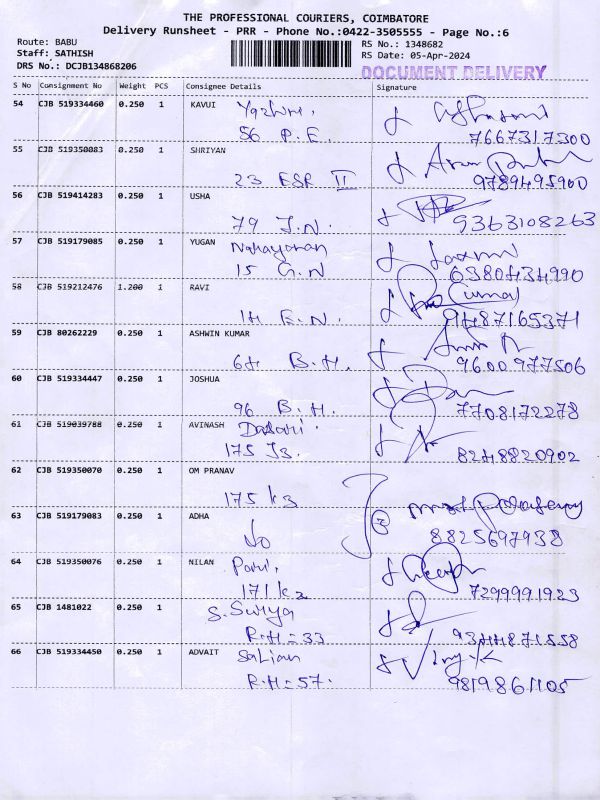 THE PROFESSIONAL COURIERS, COIMBATORE
Delivery Runsheet - PRR - Phone No.:0422-3505555 - Page No.:6
Route: BABU
RS No.: 1348682
Staff: SATHISH
RS Date: 05-Apr-2024
DRS No.: DCJB134868206
DOCUMENT DELIVERY
S No Consignment No Weight PCS Consignee Details Signature
54 CJB 519334460 0.250 1 KAVUI
56 P.E. 7667317300
55 CJB 519350083 0.250 1 SHRIYAN
23 ESR II 9789495900
56 CJB 519414283 0.250 1 USHA
79 J.N. 9363108263
57 CJB 519179085 0.250 1 YUGAN Narayanan
15 G.N 6380434990
58 CJB 519212476 1.200 1 RAVI Kumar
14 E.N. 9487165371
59 CJB 80262229 0.250 1 ASHWIN KUMAR
64 B.H. 9600977506
60 CJB 519334447 0.250 1 JOSHUA
96 B.H. 7708172278
61 CJB 519039788 0.250 1 AVINASH Dasari.
175 J3. 8248820902
62 CJB 519350070 0.250 1 OM PRANAV
175 K3
63 CJB 519179083 0.250 1 ADHA
do 8825697938
64 CJB 519350076 0.250 1 NILAN
171 K2 7299991923
65 CJB 1481022 0.250 1 S. Surya
R.H=33 9344871558
66 CJB 519334450 0.250 1 ADVAIT Salian
R.H=57. 9819861105